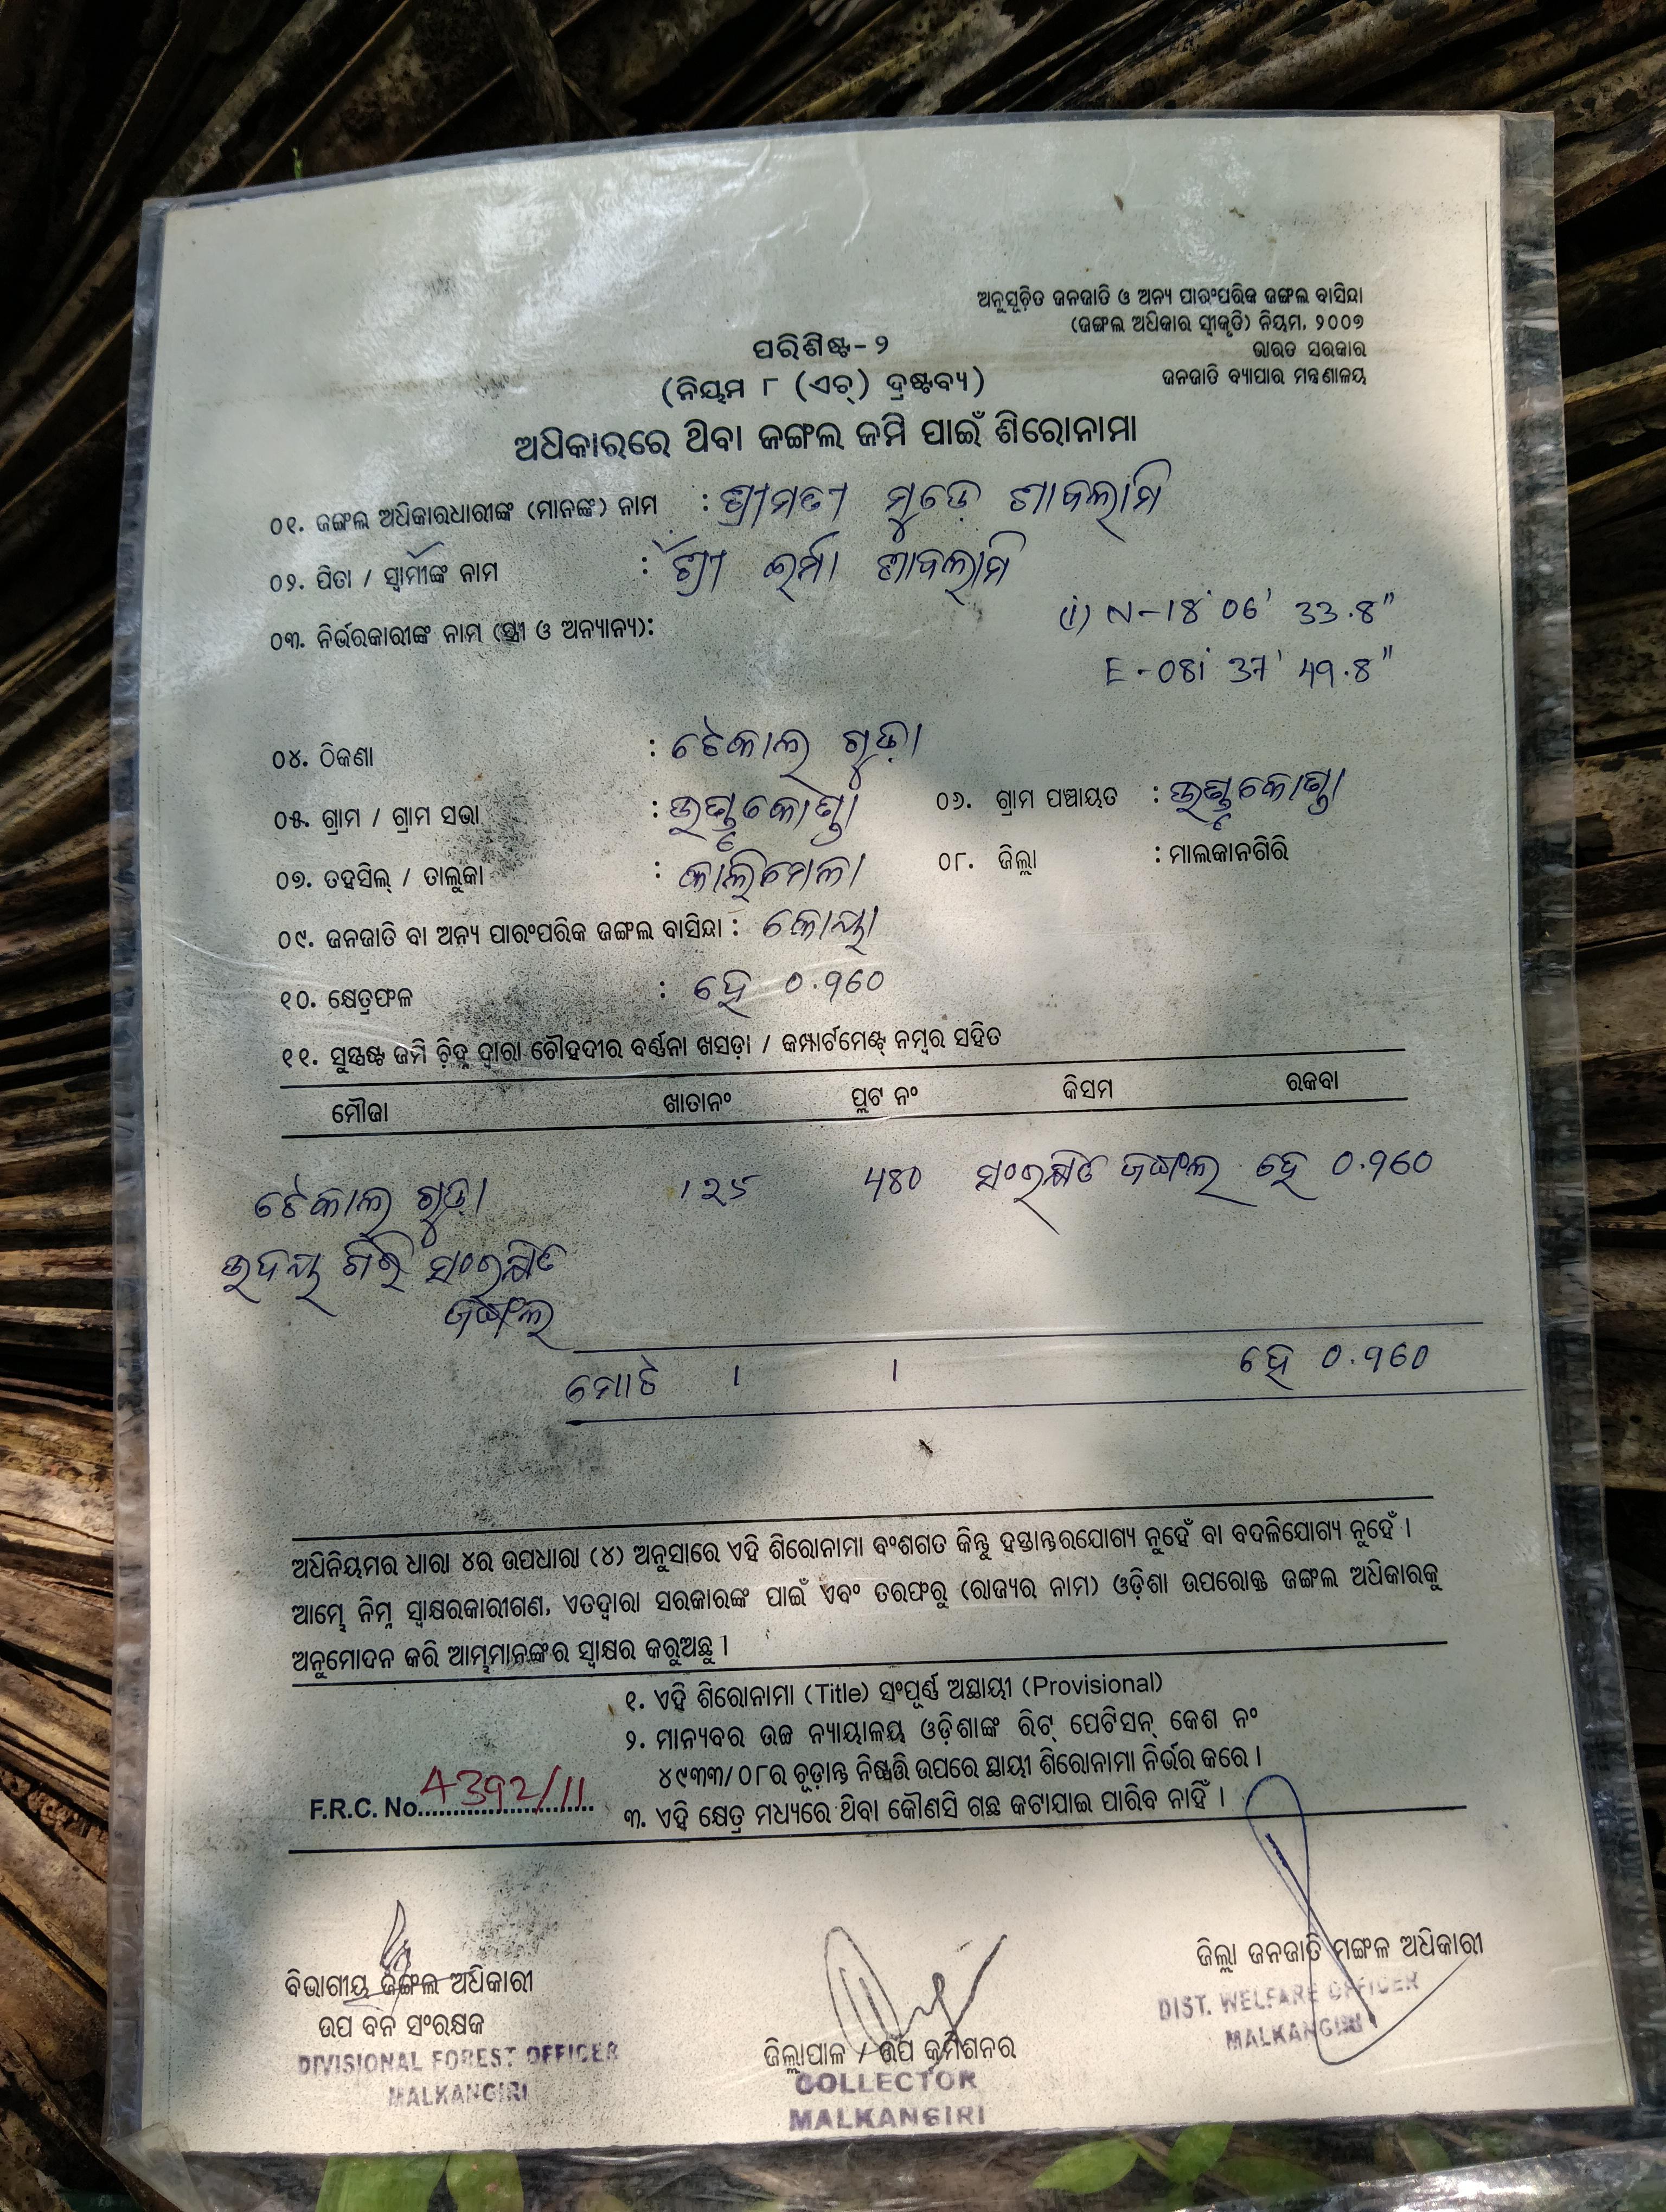 ଅନୁସୂଚିତ ଜନଜାତି ଓ ଅନ୍ୟ ପାରଂପରିକ ଜଙ୍ଗଲ ବାସିନ୍ଦା
(ଜଙ୍ଗଲ ଅଧିକାର ସ୍ୱୀକୃତି) ନିୟମ, ୨୦୦୭
ଭାରତ ସରକାର
ଜନଜାତି ବ୍ୟାପାର ମନ୍ତ୍ରଣାଳୟ
ପରିଶିଷ୍ଟ-୨
(ନିୟମ ୮ (ଏଚ୍) ଦ୍ରଷ୍ଟବ୍ୟ)
ଅଧିକାରରେ ଥିବା ଜଙ୍ଗଲ ଜମି ପାଇଁ ଶିରୋନାମା
୦୧. ଜଙ୍ଗଲ ଅଧିକାରଧାରୀଙ୍କ (ମାନଙ୍କ) ନାମ : ଶ୍ରୀମତୀ ମୁଡ଼େ ଶାବଲାମି
୦୨. ପିତା / ସ୍ୱାମୀଙ୍କ ନାମ : ଶ୍ରୀ ଇର୍ମା ଶାବଲାମି
୦୩. ନିର୍ଭରକାରୀଙ୍କ ନାମ (ସ୍ତ୍ରୀ ଓ ଅନ୍ୟାନ୍ୟ):
(i) N-18° 06' 33.8"
E-081° 37' 49.8"
୦୪. ଠିକଣା : ଟେକାଲ ଗୁଡ଼ା
୦୫. ଗ୍ରାମ / ଗ୍ରାମ ସଭା : ଉଣ୍ଡ୍ରୁକୋଣ୍ଡା ୦୬. ଗ୍ରାମ ପଞ୍ଚାୟତ : ଉଣ୍ଡ୍ରୁକୋଣ୍ଡା
୦୭. ତହସିଲ୍ / ତାଲୁକା : କାଲିମେଳା ୦୮. ଜିଲ୍ଲା : ମାଲକାନଗିରି
୦୯. ଜନଜାତି ବା ଅନ୍ୟ ପାରଂପରିକ ଜଙ୍ଗଲ ବାସିନ୍ଦା : କୋୟା
୧୦. କ୍ଷେତ୍ରଫଳ : ହେ 0.960
୧୧. ସୁସ୍ପଷ୍ଟ ଜମି ଚିହ୍ନ ଦ୍ୱାରା ଚୌହଦୀର ବର୍ଣ୍ଣନା ଖସଡ଼ା / କମ୍ପାର୍ଟମେଣ୍ଟ୍ ନମ୍ବର ସହିତ
ମୌଜା ଖାତାନଂ ପ୍ଲଟ ନଂ କିସମ ରକବା
ଟେକାଲ ଗୁଡ଼ା 125 480 ସଂରକ୍ଷିତ ଜଙ୍ଗଲ ହେ 0.960
ଉଦୟ ଗିରି ସଂରକ୍ଷିତ
ଜଙ୍ଗଲ
ମୋଟ 1 1 ହେ 0.960
ଅଧିନିୟମର ଧାରା ୪ର ଉପଧାରା (୪) ଅନୁସାରେ ଏହି ଶିରୋନାମା ବଂଶଗତ କିନ୍ତୁ ହସ୍ତାନ୍ତରଯୋଗ୍ୟ ନୁହେଁ ବା ବଦଳିଯୋଗ୍ୟ ନୁହେଁ ।
ଆମ୍ଭେ ନିମ୍ନ ସ୍ୱାକ୍ଷରକାରୀଗଣ, ଏତଦ୍ୱାରା ସରକାରଙ୍କ ପାଇଁ ଏବଂ ତରଫରୁ (ରାଜ୍ୟର ନାମ) ଓଡ଼ିଶା ଉପରୋକ୍ତ ଜଙ୍ଗଲ ଅଧିକାରକୁ
ଅନୁମୋଦନ କରି ଆମ୍ଭମାନଙ୍କର ସ୍ୱାକ୍ଷର କରୁଅଛୁ ।
୧. ଏହି ଶିରୋନାମା (Title) ସଂପୂର୍ଣ୍ଣ ଅସ୍ଥାୟୀ (Provisional)
୨. ମାନ୍ୟବର ଉଚ୍ଚ ନ୍ୟାୟାଳୟ ଓଡ଼ିଶାଙ୍କ ରିଟ୍ ପେଟିସନ୍ କେଶ ନଂ
୪୯୩୩/୦୮ର ଚୂଡ଼ାନ୍ତ ନିଷ୍ପତ୍ତି ଉପରେ ସ୍ଥାୟୀ ଶିରୋନାମା ନିର୍ଭର କରେ ।
୩. ଏହି କ୍ଷେତ୍ର ମଧ୍ୟରେ ଥିବା କୌଣସି ଗଛ କଟାଯାଇ ପାରିବ ନାହିଁ ।
F.R.C. No. 4392/11
ବିଭାଗୀୟ ଜଙ୍ଗଲ ଅଧିକାରୀ
ଉପ ବନ ସଂରକ୍ଷକ
DIVISIONAL FOREST OFFICER
MALKANGIRI
ଜିଲ୍ଲାପାଳ / ଉପ କମିଶନର
COLLECTOR
MALKANGIRI
ଜିଲ୍ଲା ଜନଜାତି ମଙ୍ଗଳ ଅଧିକାରୀ
DIST. WELFARE OFFICER
MALKANGIRI